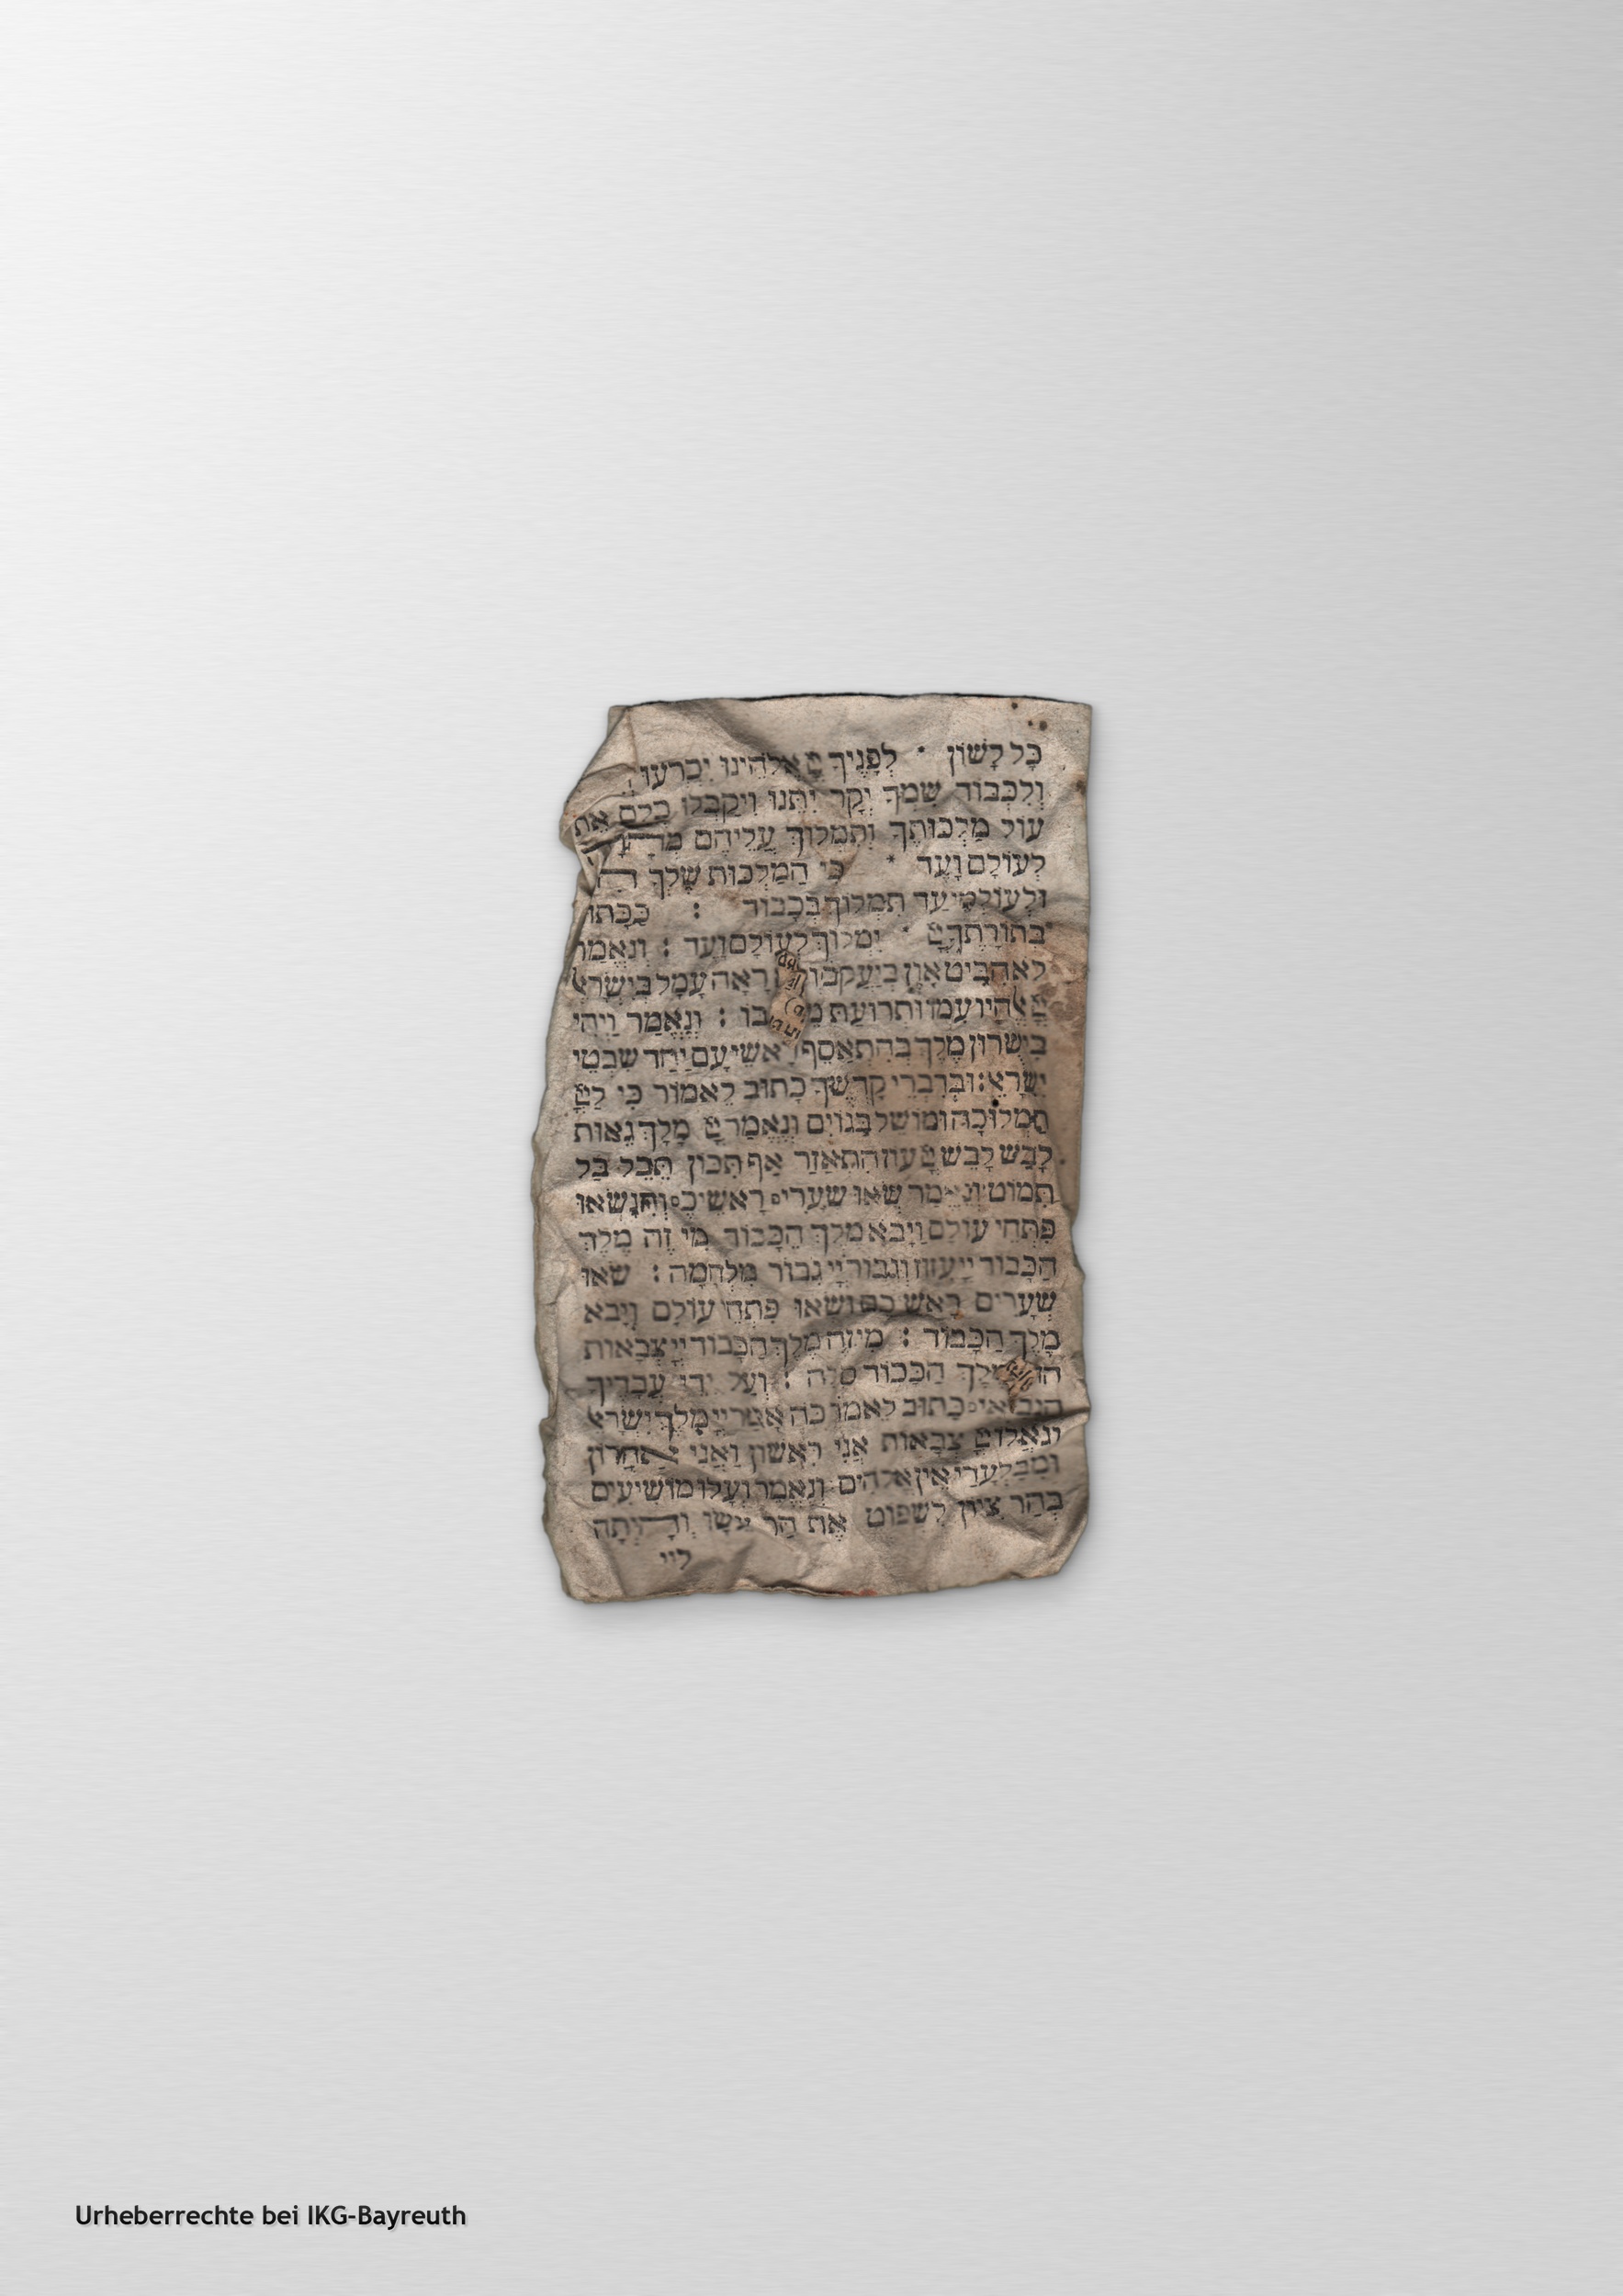 כָּל לָשׁוֹן · לְפָנֶיךָ יְיָ אֱלֹהֵינוּ יִכְרְעוּ
וְלִכְבוֹד שִׁמְךָ יְקָר יִתֵּנוּ וִיקַבְּלוּ כֻלָּם אֶת
עוֹל מַלְכוּתֶךָ וְתִמְלוֹךְ עֲלֵיהֶם מְהֵרָה
לְעוֹלָם וָעֶד * כִּי הַמַּלְכוּת שֶׁלְּךָ הִ
וּלְעוֹלְמֵי עַד תִּמְלוֹךְ בְּכָבוֹד : כַּכָּתוּ
בְּתוֹרָתֶךָ יְיָ · יִמְלוֹךְ לְעוֹלָם וָעֶד : וְנֶאֱמַר
לֹא הִבִּיט אָוֶן בְּיַעֲקֹב וְלֹא רָאָה עָמָל בְּיִשְׂרָאֵל
יְיָ אֱלֹהָיו עִמּוֹ וּתְרוּעַת בּוֹ : וְנֶאֱמַר וַיְהִי
בִישֻׁרוּן מֶלֶךְ בְּהִתְאַסֵּף רָאשֵׁי עָם יַחַד שִׁבְטֵי
יִשְׂרָאֵל : וּבְדִבְרֵי קָדְשְׁךָ כָּתוּב לֵאמוֹר כִּי לַיְיָ
הַמְּלוּכָה וּמוֹשֵׁל בַּגּוֹיִם וְנֶאֱמַר יְיָ מָלָךְ גֵּאוּת
לָבֵשׁ לָבֵשׁ יְיָ עוֹז הִתְאַזָּר אַף תִּכּוֹן תֵּבֵל בַּל
תִּמּוֹט וְנֶאֱמַר שְׂאוּ שְׁעָרִים רָאשֵׁיכֶם וְהִנָּשְׂאוּ
פִּתְחֵי עוֹלָם וְיָבֹא מֶלֶךְ הַכָּבוֹד מִי זֶה מֶלֶךְ
הַכָּבוֹד יְיָ עִזּוּז וְגִבּוֹר יְיָ גִּבּוֹר מִלְחָמָה : שְׂאוּ
שְׁעָרִים רָאשֵׁיכֶם וּשְׂאוּ פִּתְחֵי עוֹלָם וְיָבֹא
מֶלֶךְ הַכָּבוֹד : מִי זֶה מֶלֶךְ הַכָּבוֹד יְיָ צְבָאוֹת
מֶלֶךְ הַכָּבוֹד סֶלָה : וְעַל יְדֵי עֲבָדֶיךָ
הַנְּבִיאִים כָּתוּב לֵאמוֹר כֹּה אָמַר יְיָ מֶלֶךְ יִשְׂרָאֵל
וְגֹאֲלוֹ יְיָ צְבָאוֹת אֲנִי רִאשׁוֹן וַאֲנִי אַחֲרוֹן
וּמִבַּלְעָדַי אֵין אֱלֹהִים וְנֶאֱמַר וְעָלוּ מוֹשִׁיעִים
בְּהַר צִיּוֹן לִשְׁפּוֹט אֶת הַר עֵשָׂו וְהָיְתָה
לַיְיָ
Urheberrechte bei IKG-Bayreuth